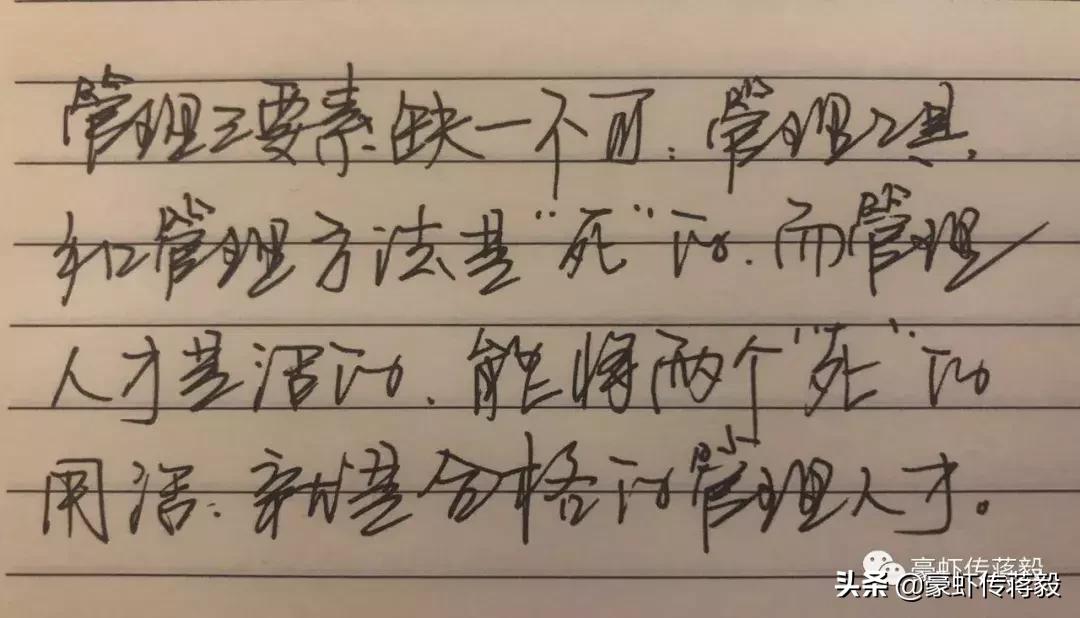 管理三要素缺一不可：管理工具，
和管理方法是“死”的，而管理
人才是活的，能将两个“死”的
用活，就是合格的管理人才。
豪虾传蒋毅
头条@豪虾传蒋毅